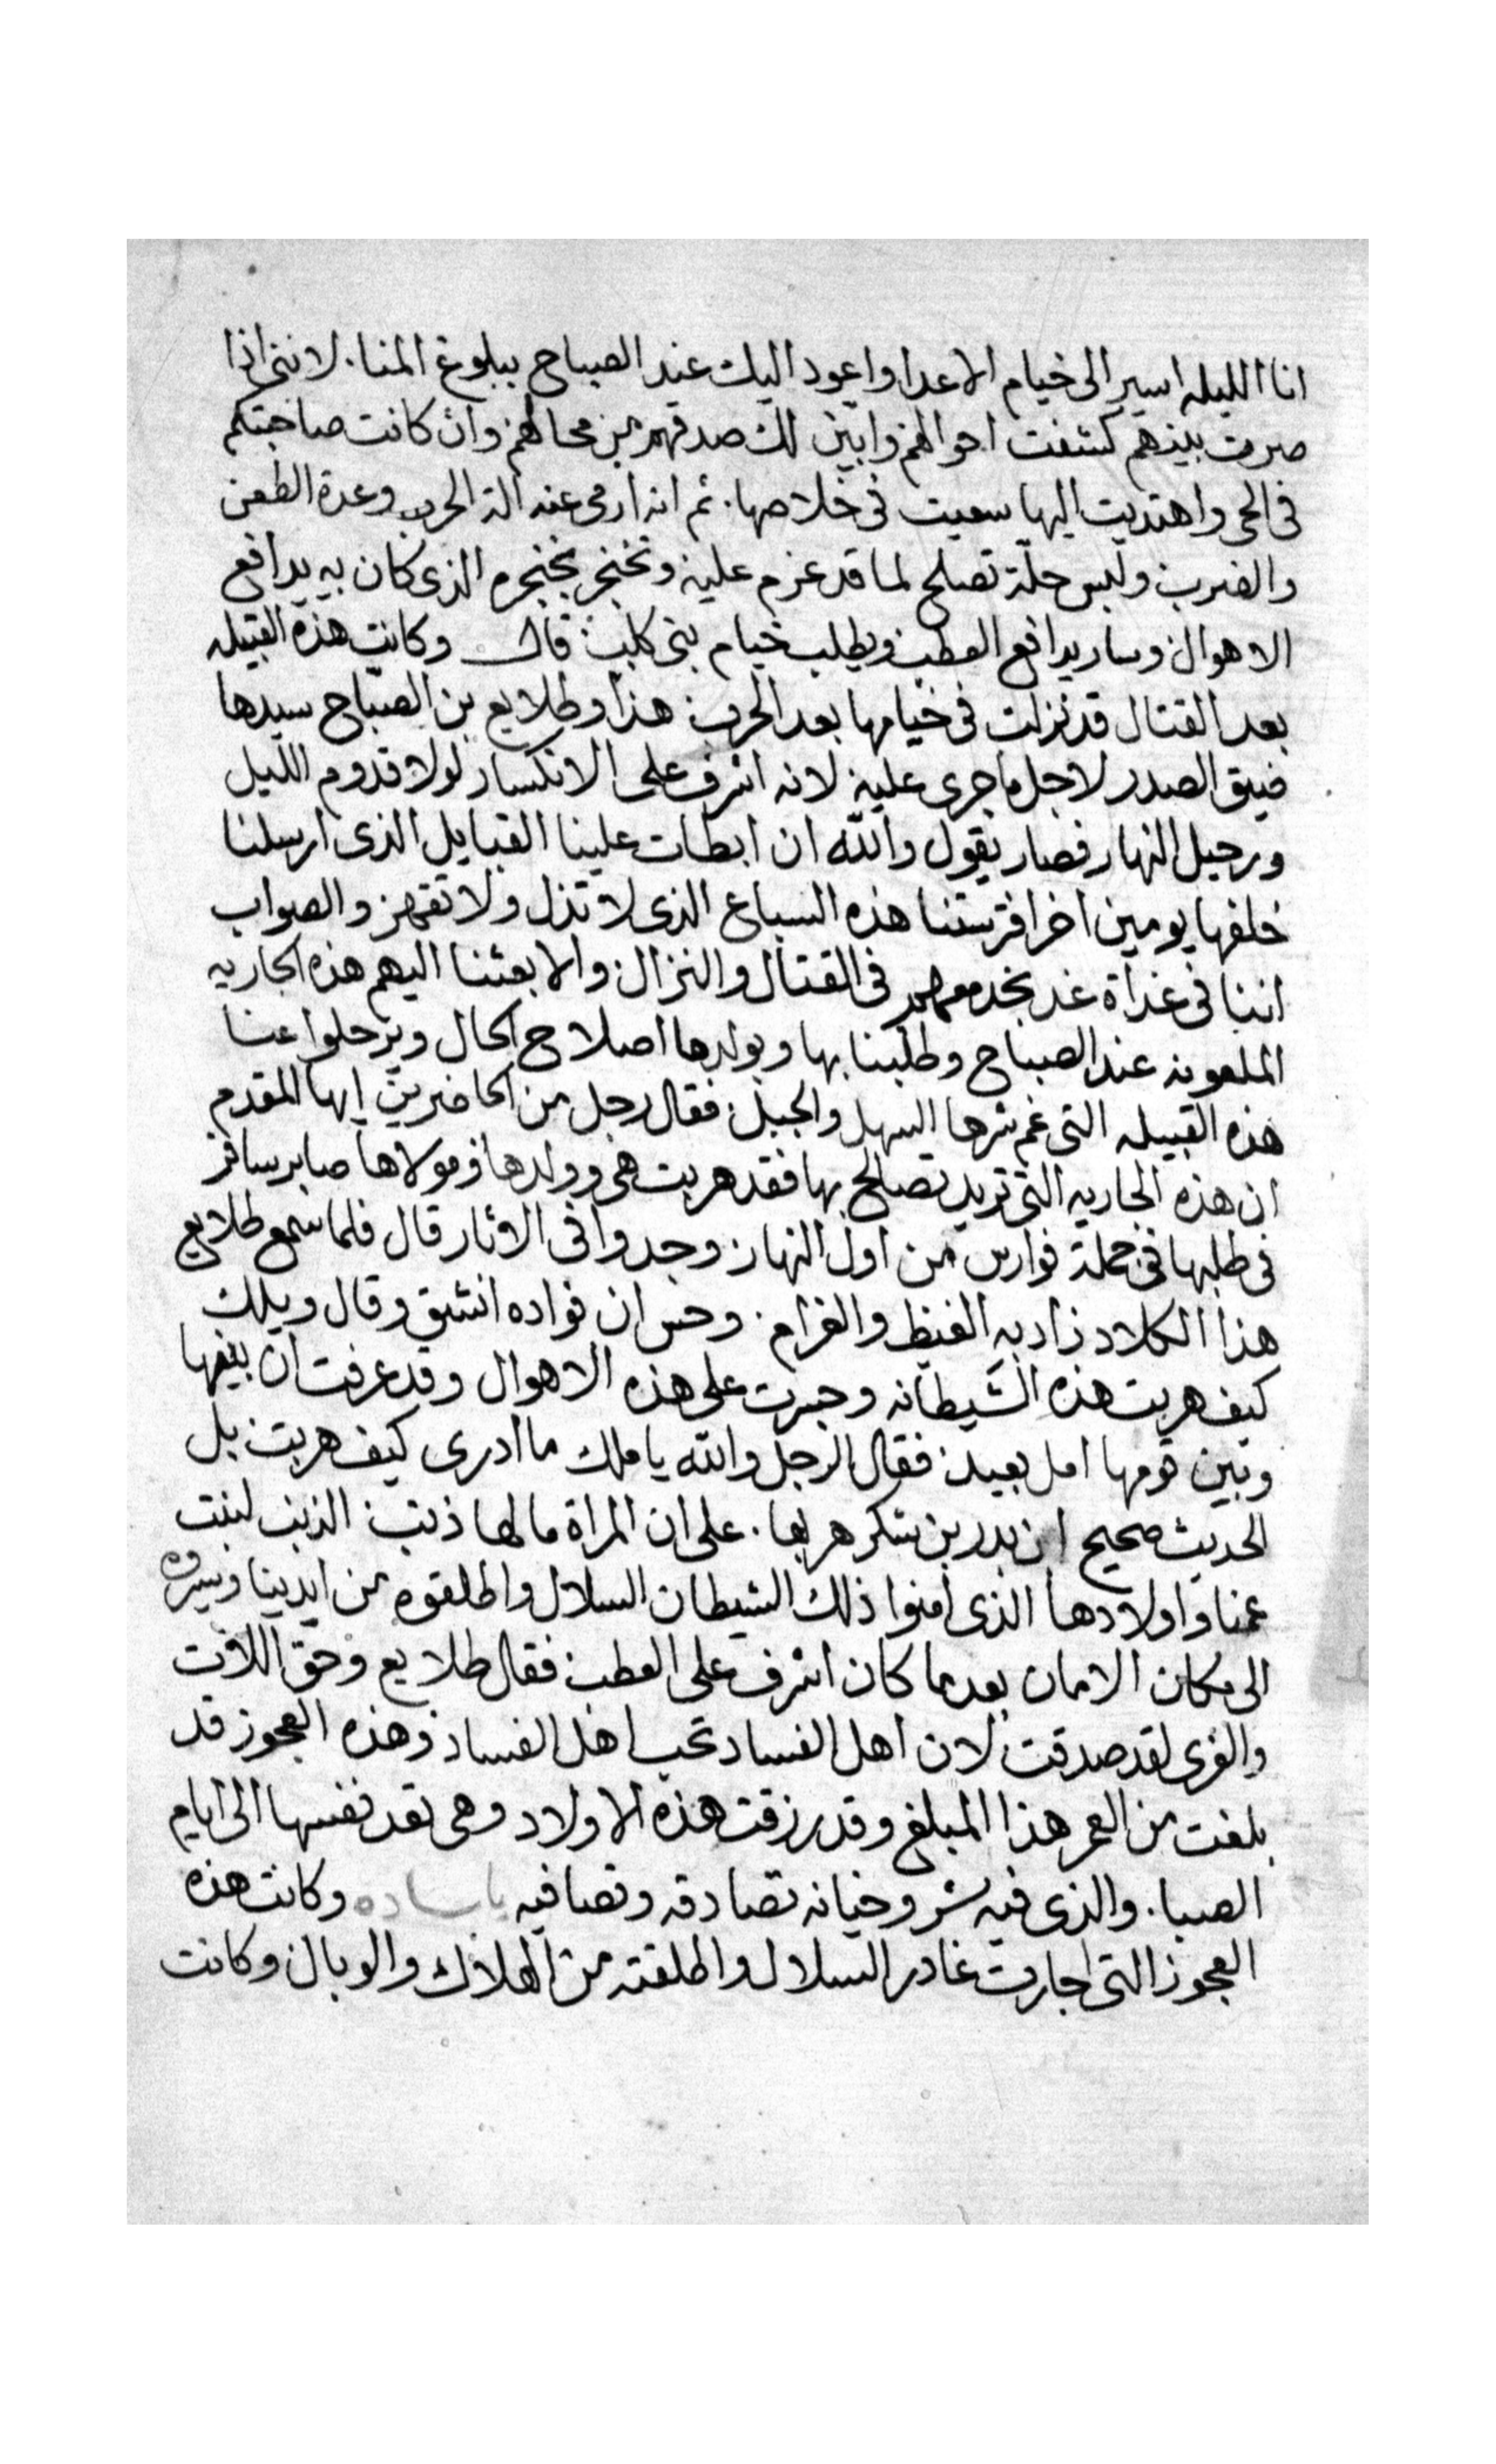 انا الليله اسير الى خيام الاعدا واعود اليك عند الصباح ببلوغ المنا. لانني اذا
صرت بينهم كشفت احوالهم وابين لك صدقهم من محالهم وان كانت صاحبتكم
في الحي واهتديت اليها سعيت في خلاصها. ثم انه ارمى عنه الة الحرب وعدة الطعن
والضرب ولبس حلة تصلح لما قد عزم عليه وتخنجر بخنجره الذى كان به يدافع
الاهوال وسار يدافع العطب ويطلب خيام بنى كلب قال وكانت هذه القبيله
بعد القتال قد نزلت فى خيامها بعد الحرب هذا وطلايع بن الصباح سيدها
ضيق الصدر لاجل ما جرى عليه لانه اشرف على الانكسار لولا قدوم الليل
ورحيل النهار فصار يقول والله ان ابطات علينا القبايل الذى ارسلنا
خلفها يومين اخر افترستنا هذه السباع الذى لا تذل ولا تقهر والصواب
اننا فى غداة غد نخدمهم فى القتال والنزال والا بعثنا اليهم هذه الجاريه
الملعونه عند الصباح وطلبنا بها وبولدها اصلاح الحال ويرحلوا عنا
هذه القبيله التى عم شرها السهل والجبل فقال رجل من الحاضرين ايها المقدم
ان هذه الجاريه التى تريد تصالح بها فقد هربت هى وولدها ومولاها صابر سافر
فى طلبها فى جملة فوارس من اول النهار وجدوا فى الاثار قال فلما سمع طلايع
هذا الكلام زاد به الغيظ والغرام. وحس ان فواده انشق وقال ويلك
كيف هربت هذه الشيطانه وجسرت على هذه الاهوال وقد عرفت ان بينها
وبين قومها امل بعيد فقال الرجل والله يا ملك ما ادرى كيف هربت بل
الحديث صحيح ان بدر بن شكر هربها. على ان المراة ما لها ذنب الذنب لبنت
عمنا واولادها الذى امنوا ذلك الشيطان السلال واطلقوه من ايدينا وسيروه
الى مكان الامان بعد ما كان اشرف على العطب فقال طلايع وحق اللات
والعزى لقد صدقت لان اهل الفساد تحب اهل الفساد وهذه العجوز قد
بلغت من العمر هذا المبلغ وقد رزقت هذه الاولاد وهى تعد نفسها الى ايام
الصبا. والذى فيه شر وخيانه تصادقه وتصافيه ياساده وكانت هذه
العجوز التى اجارت غادر السلال واطلقته من الهلاك والوبال وكانت